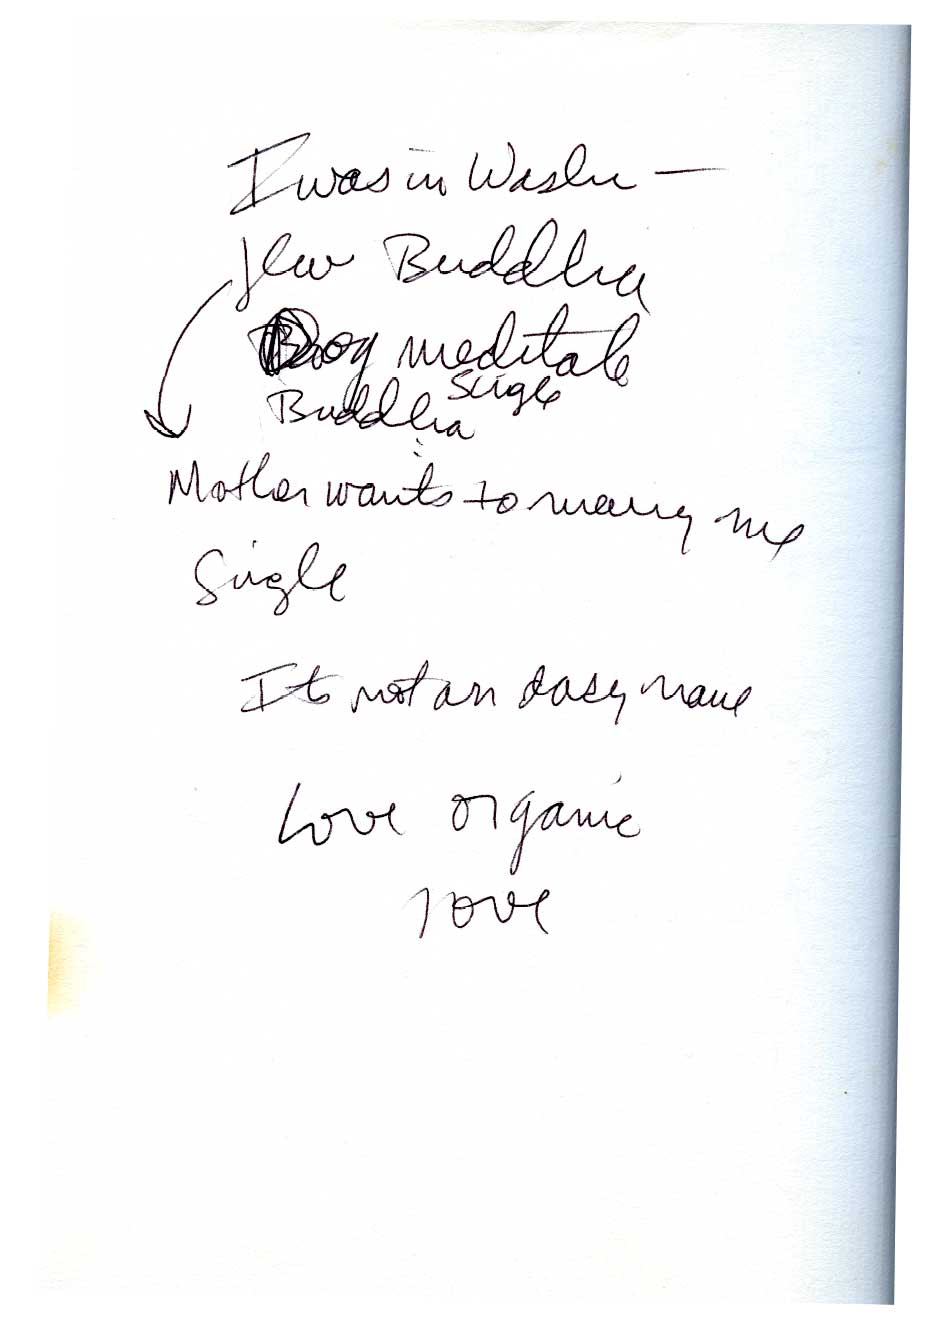 I was in Wash —
Jew Buddha
Dog meditate
Single
Buddha
Mother wants to marry me
Single
Its not an easy name
Love organic
love